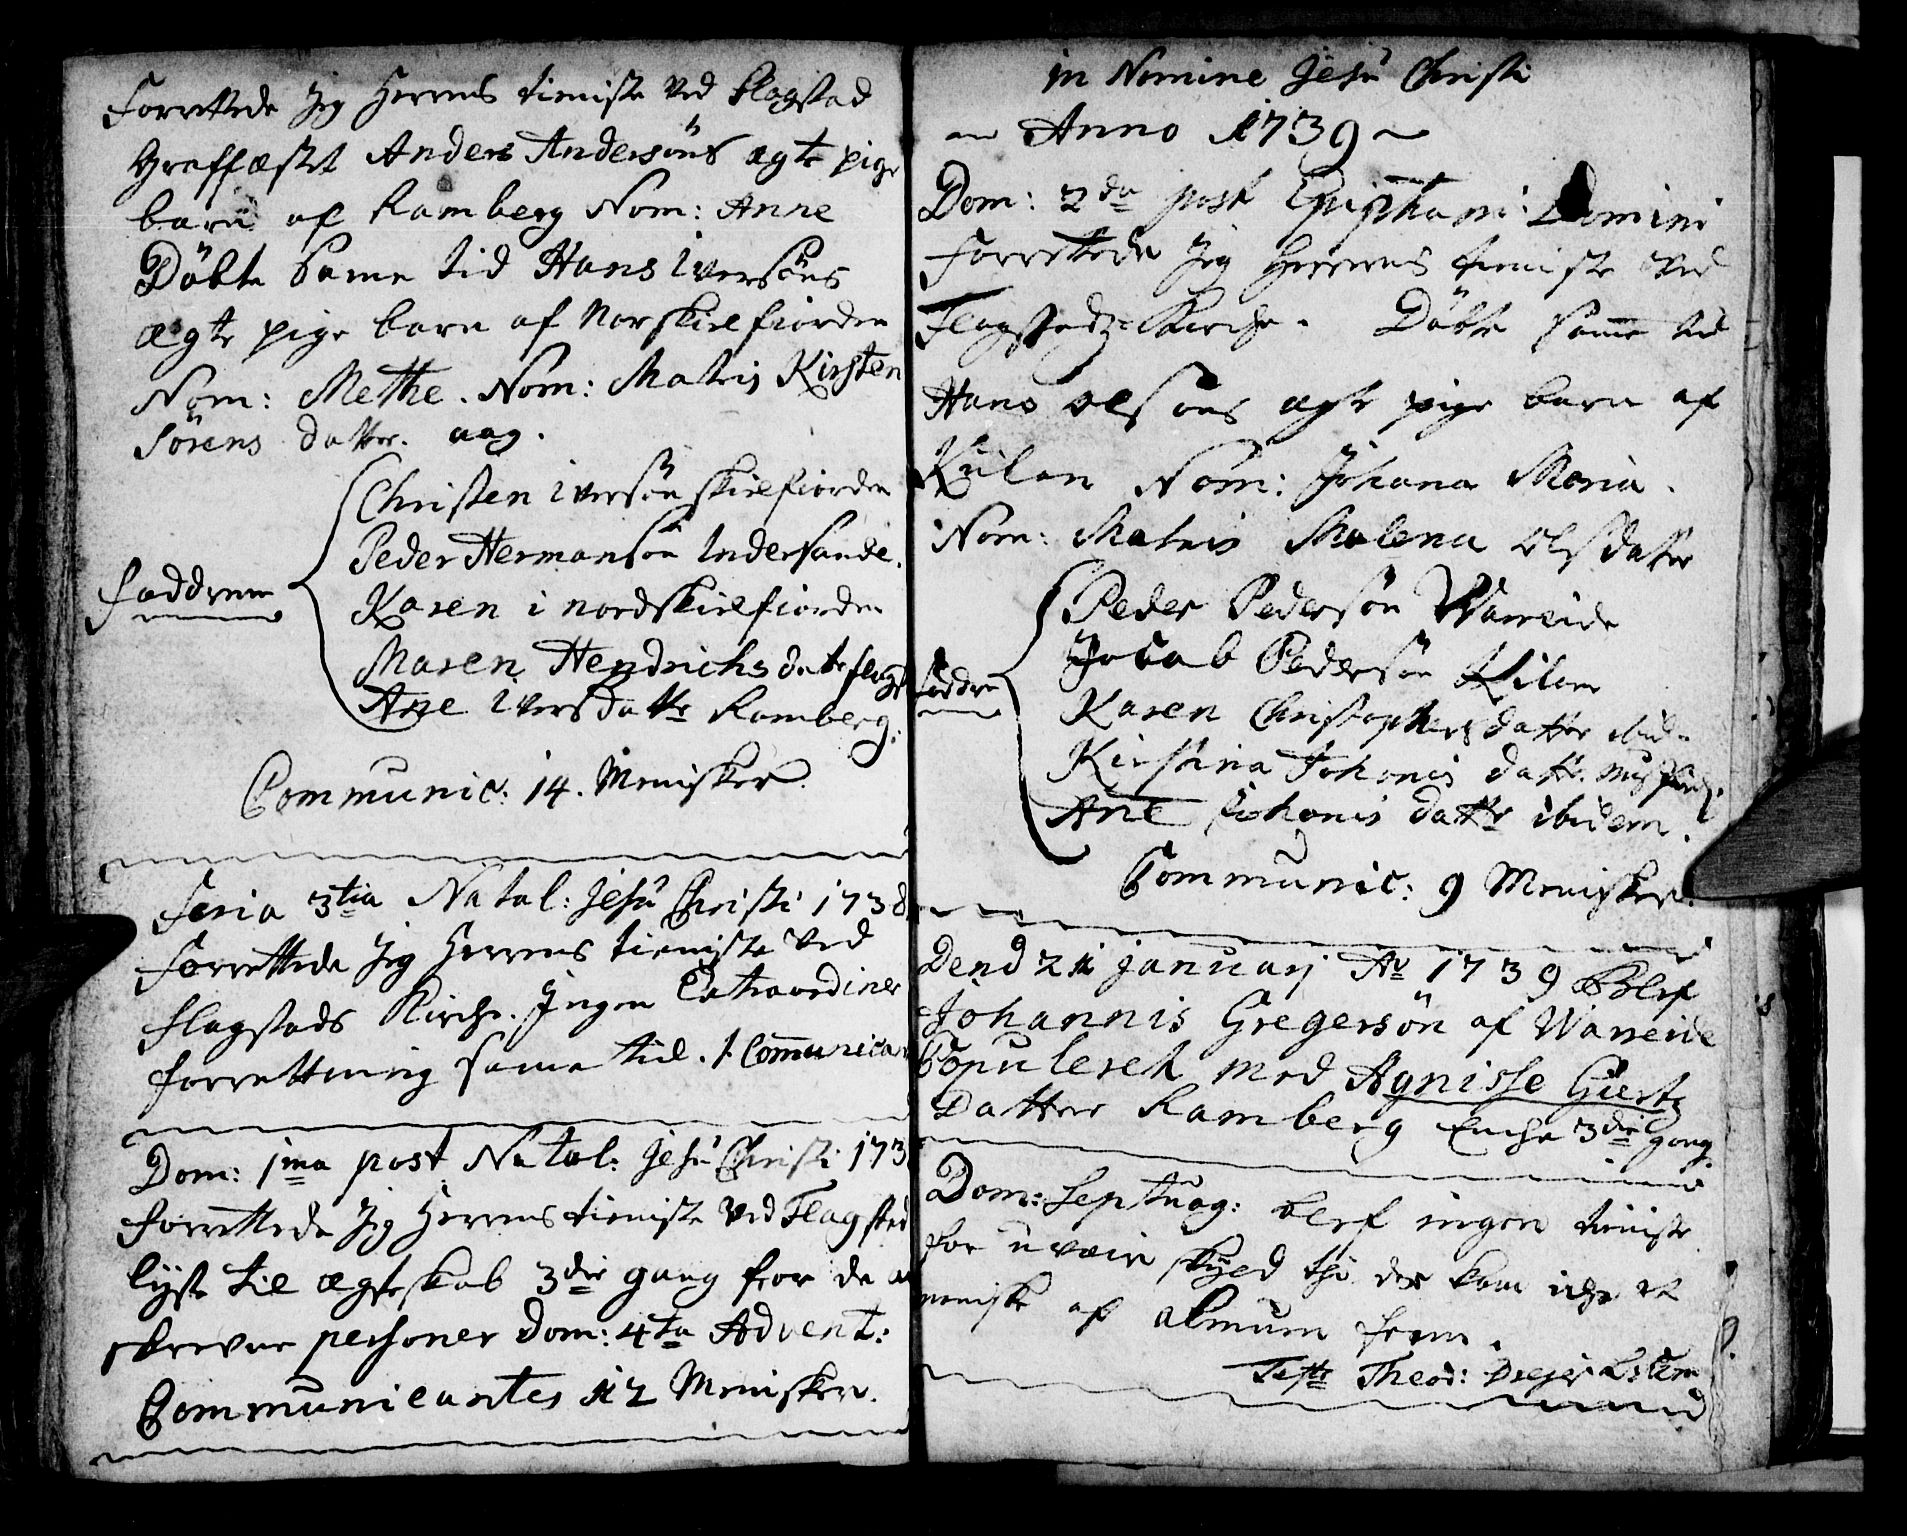 Forrettede Jeg Herrens tieniste ved Flagstad
Graffæstet Anders Andersöns ægte pige
barn af Ramberg Nom: Anne
Döbte Same tid Hans Iversöns
ægte pige barn af Norskielfiorden
Nom: Methe. Nom: Matris Kirsten
Sörens datter. aag.
Christen Iversön skielfiorden
Peder Hermansön Indersande.
Faddrene
Karen i nordskielfiorden
Maren Hendrichs datr flagst
Ane Ivers datter Ramberg.
Communic: 14. Menisker.
Feria 3tia Natal: Jesu Christi 1738
Forrettede Jeg Herrens tieniste ved
flagstads Kirche. Ingen Extraordiner
forrettning same tid. 1 Comunicant
Dom: 1ma post Natal: Jesu Christi 173
Forrettede Jeg Herrens tieniste ved Flagsted
lyste til ægteskab 3die gang for de
skrevne personer Dom: 4ta Advent:
Communicantes 12 Menisker.
in Nomine Jesu Christi
Anno 1739
Dom: 2da post Epiphani: Domini
Forrettede Jeg Herrens tieniste ved
Flagstedz Kirche. Döbte same tid
Hans Olsöns ægte pige barn af
Kuilen Nom: Johana Maria.
Nom: Matris Malena Olsdatter
Peder Pedersön Warreide
Jocab Pedersön Kilen
Faddre
Karen Christophersdatter ibid.
Kirstina Johanis datr.
Ane Johanis datter ibidem.
Communic: 9 Menisker.
Dend 21 januarj Ao 1739 Blef
Johannis Gregersön af Wareide
Copuleret med Agnisse Giertz
Datter Ramberg Enche 3die gang.
Dom: Septuag: blef ingen tieniste
for uveir skyld thi der kom iche et
meniske af almuen frem.
Teste Theod: Dreyer